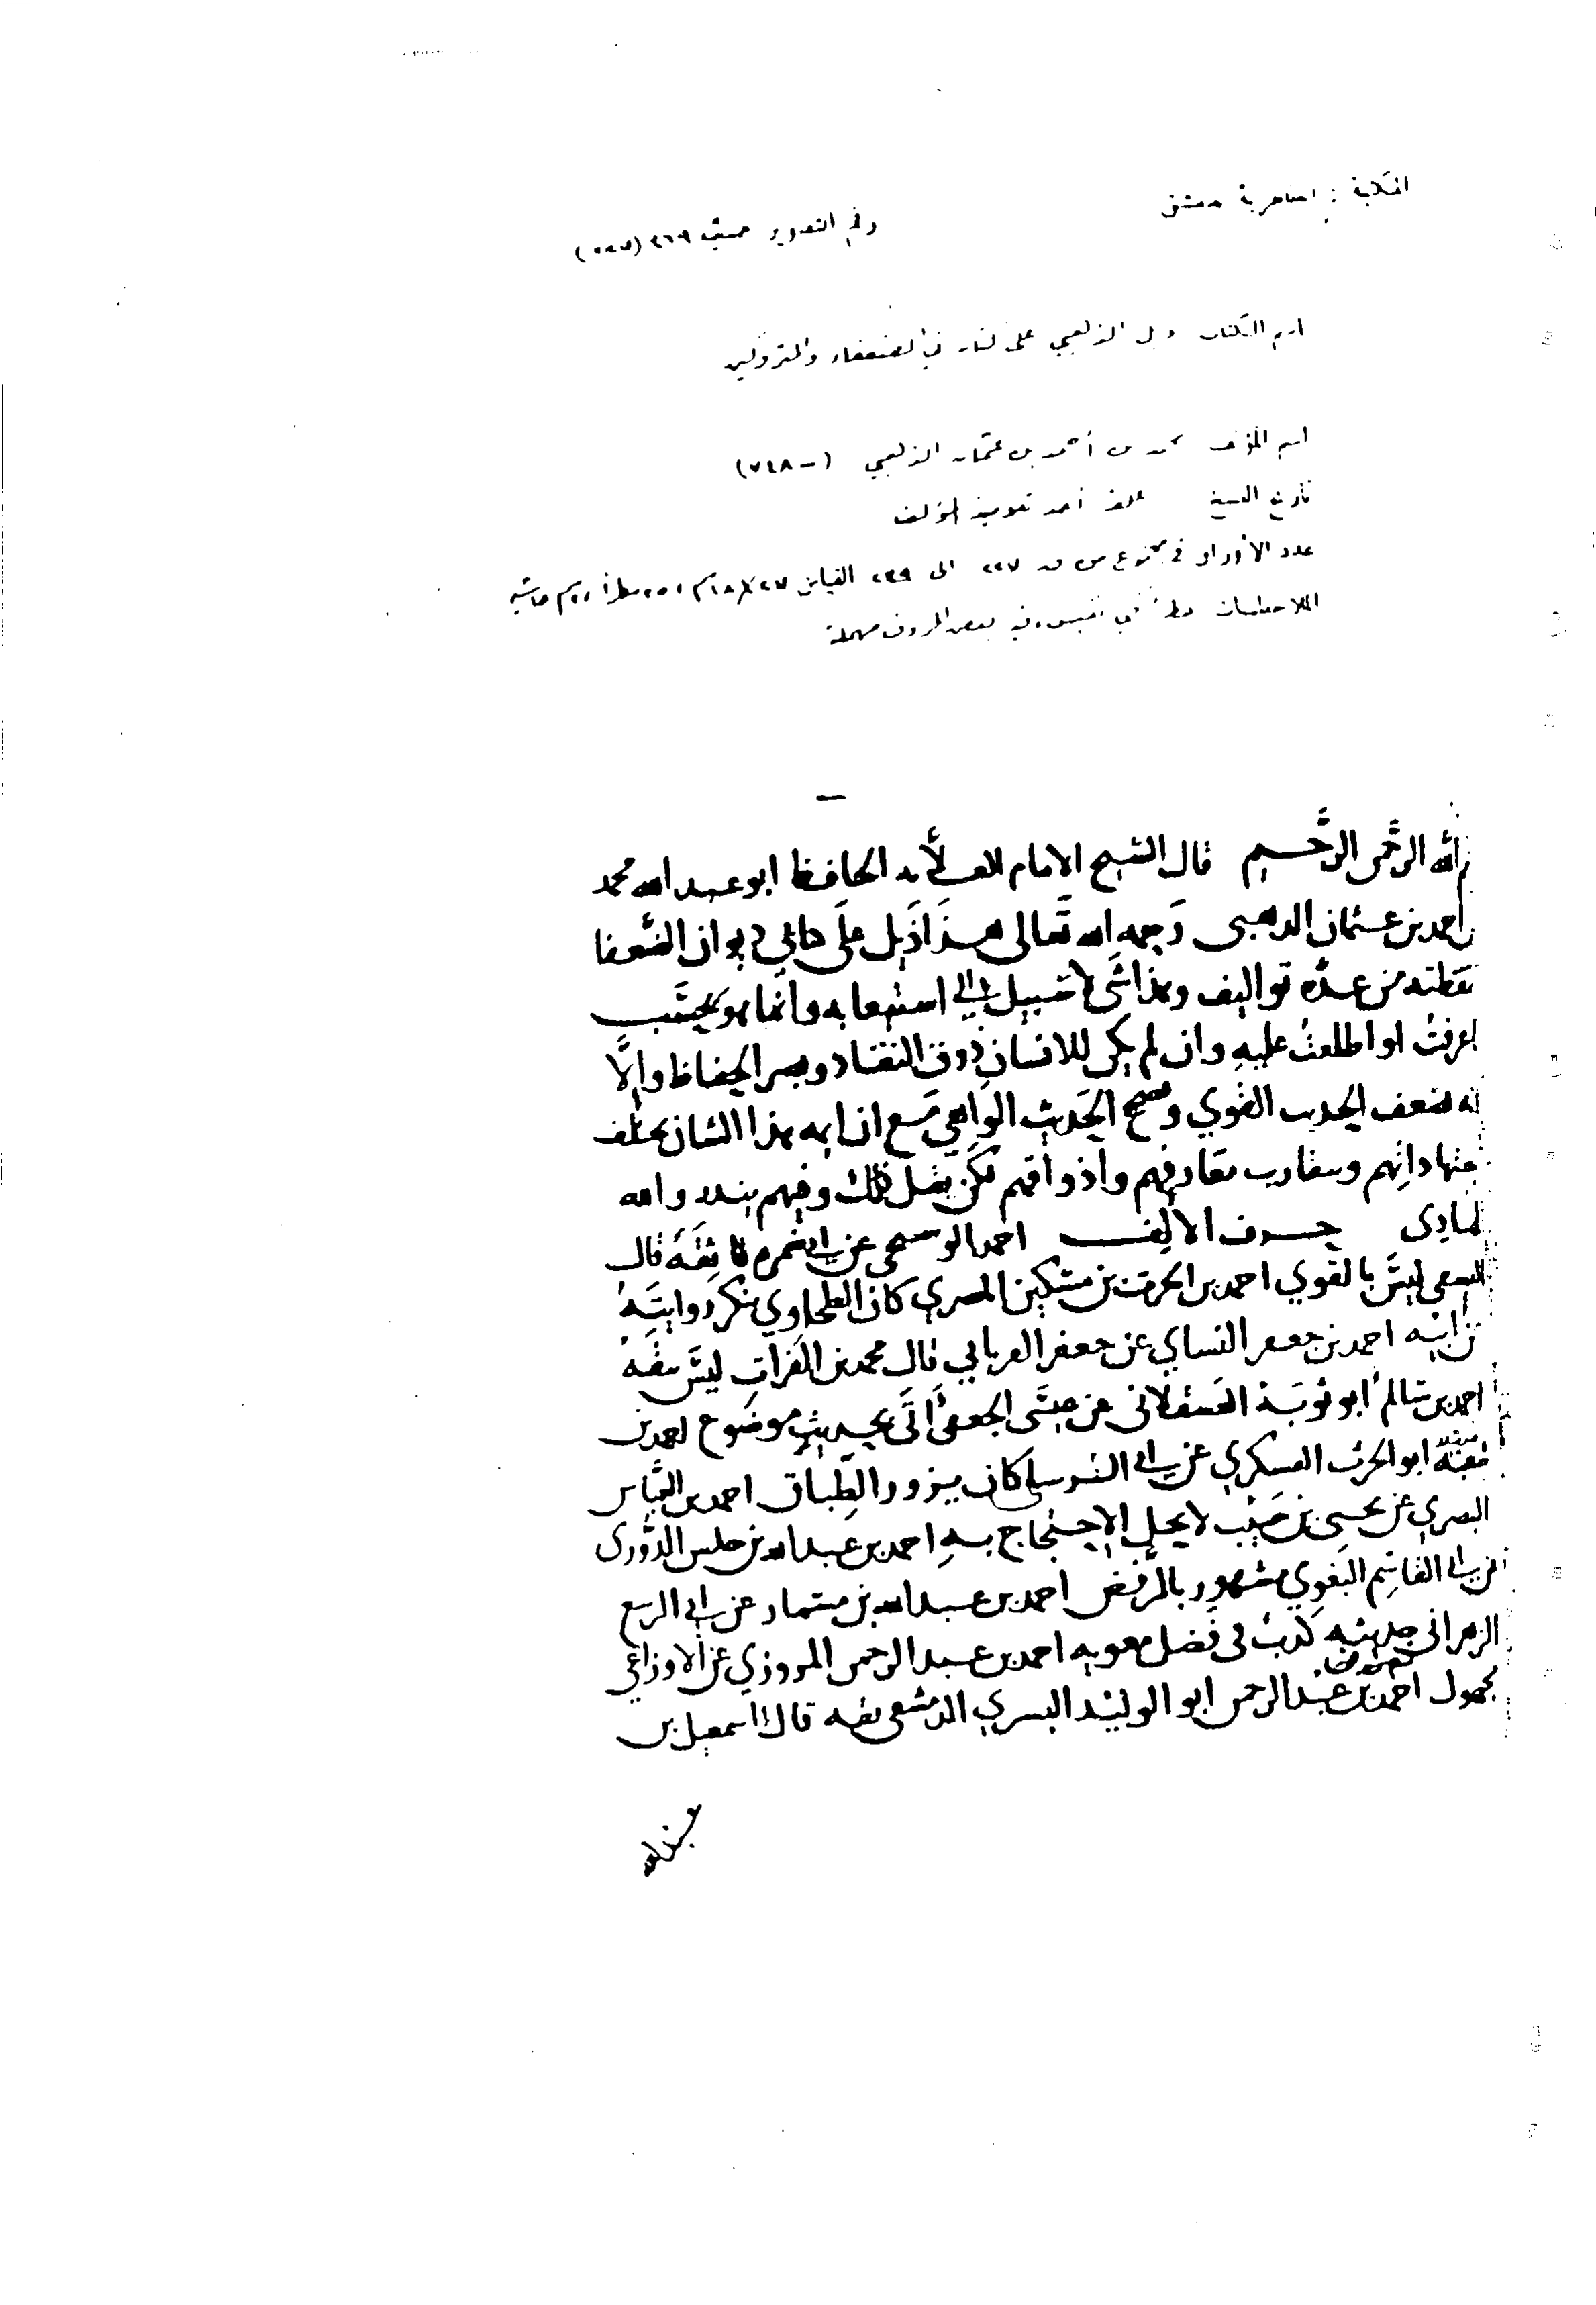 المكتبة : الظاهرية دمشق
رقم التصوير
اسم الكتاب ذيل الذهبي على كتابه في الضعفاء والمتروكين
اسم المؤلف محمد بن أحمد بن عثمان الذهبي ( - ٧٤٨)
تاريخ النسخ بخط أحد تلاميذ المؤلف
عدد الأوراق في مجموع من ٢٢٧ الى ٢٣٩ القياس
الملاحظات نفيس وفيه بعض الحروف مهملة
الله الرحمن الرحيم قال الشيخ الامام العلامه الحافظ ابو عبد الله محمد
احمد بن عثمان الذهبي رحمه الله تعالى هذا ذيل على كتابي ديوان الضعفا
تواليف وهذا شي لا سبيل الى استيعابه وانما هو بحسب
او اطلعت عليه وان لم يكن للانسان ذوق النقاد وبصر الحفاظ والا
ضعف الحديث القوي وصحح الحديث الواهي مع ان ايمه هذا الشان يختلف
وتتقارب معارفهم واذواقهم لكن يقل ذلك وفيهم يندر والله
الهادي حرف الالف احمد عن ابي ضمره ثقة قال
ليس بالقوي احمد بن الحرث بن مسكين المصري كان الطحاوي ينكر روايته
عن ابيه احمد بن جعفر النساي عن جعفر الفريابي قال محمد بن الفرات ليس بثقة
احمد بن سالم ابو توبة العسقلاني عن حسين الجعفي اتى بحديث موضوع احمد بن
ابو الحرث العسكري عن ابي النرسي كان يزور الطباق احمد بن العباس
البصري عن يحيى بن حبيب لا يحل الاحتجاج به احمد بن عبد الله بن جلين الدوري
عن ابي القاسم البغوي مشهور بالرفض احمد بن عبد الله بن مسمار عن ابي الربيع
الزهراني حديثه كذب في فضل معويه احمد بن عبد الرحمن المروزي عن الاوزاعي
مجهول احمد بن عبد الرحمن ابو الوليد البسري الدمشقي ثقه قال اسمعيل بن